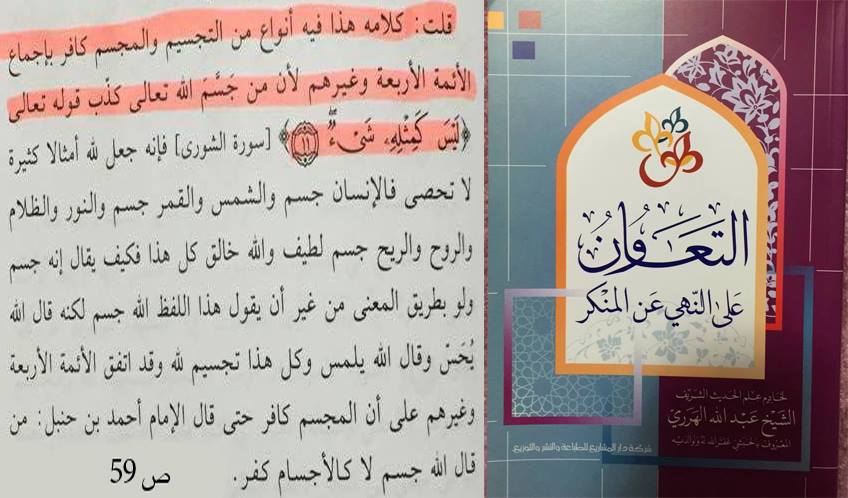 قلت: كلامه هذا فيه أنواع من التجسيم والمجسم كافر بإجماع
الأئمة الأربعة وغيرهم لأن من جَسَّمَ الله تعالى كذّب قوله تعالى
﴿لَيْسَ كَمِثْلِهِۦ شَىْءٌۖ ۝١١﴾ [سورة الشورى] فإنه جعل لله أمثالا كثيرة
لا تحصى فالإنسان جسم والشمس والقمر جسم والنور والظلام
والروح والريح جسم لطيف والله خالق كل هذا فكيف يقال إنه جسم
ولو بطريق المعنى من غير أن يقول هذا اللفظ الله جسم لكنه قال الله
يُحَسّ وقال الله يلمس وكل هذا تجسيم لله وقد اتفق الأئمة الأربعة
وغيرهم على أن المجسم كافر حتى قال الإمام أحمد بن حنبل: من
قال الله جسم لا كالأجسام كفر.
ص 59
التَّعَاوُنُ
عَلَى النَّهْيِ عَنِ المُنْكَر
لخادِمِ عِلْمِ الحَديثِ الشَّريف
الشَّيْخِ عَبْدِ اللهِ الهَرَرِيّ
المَعْرُوفِ بِالحَبَشِيّ غَفَرَ اللهُ لَهُ وَلِوَالِدَيْهِ
شركة دار المشاريع للطباعة والنشر والتوزيع.